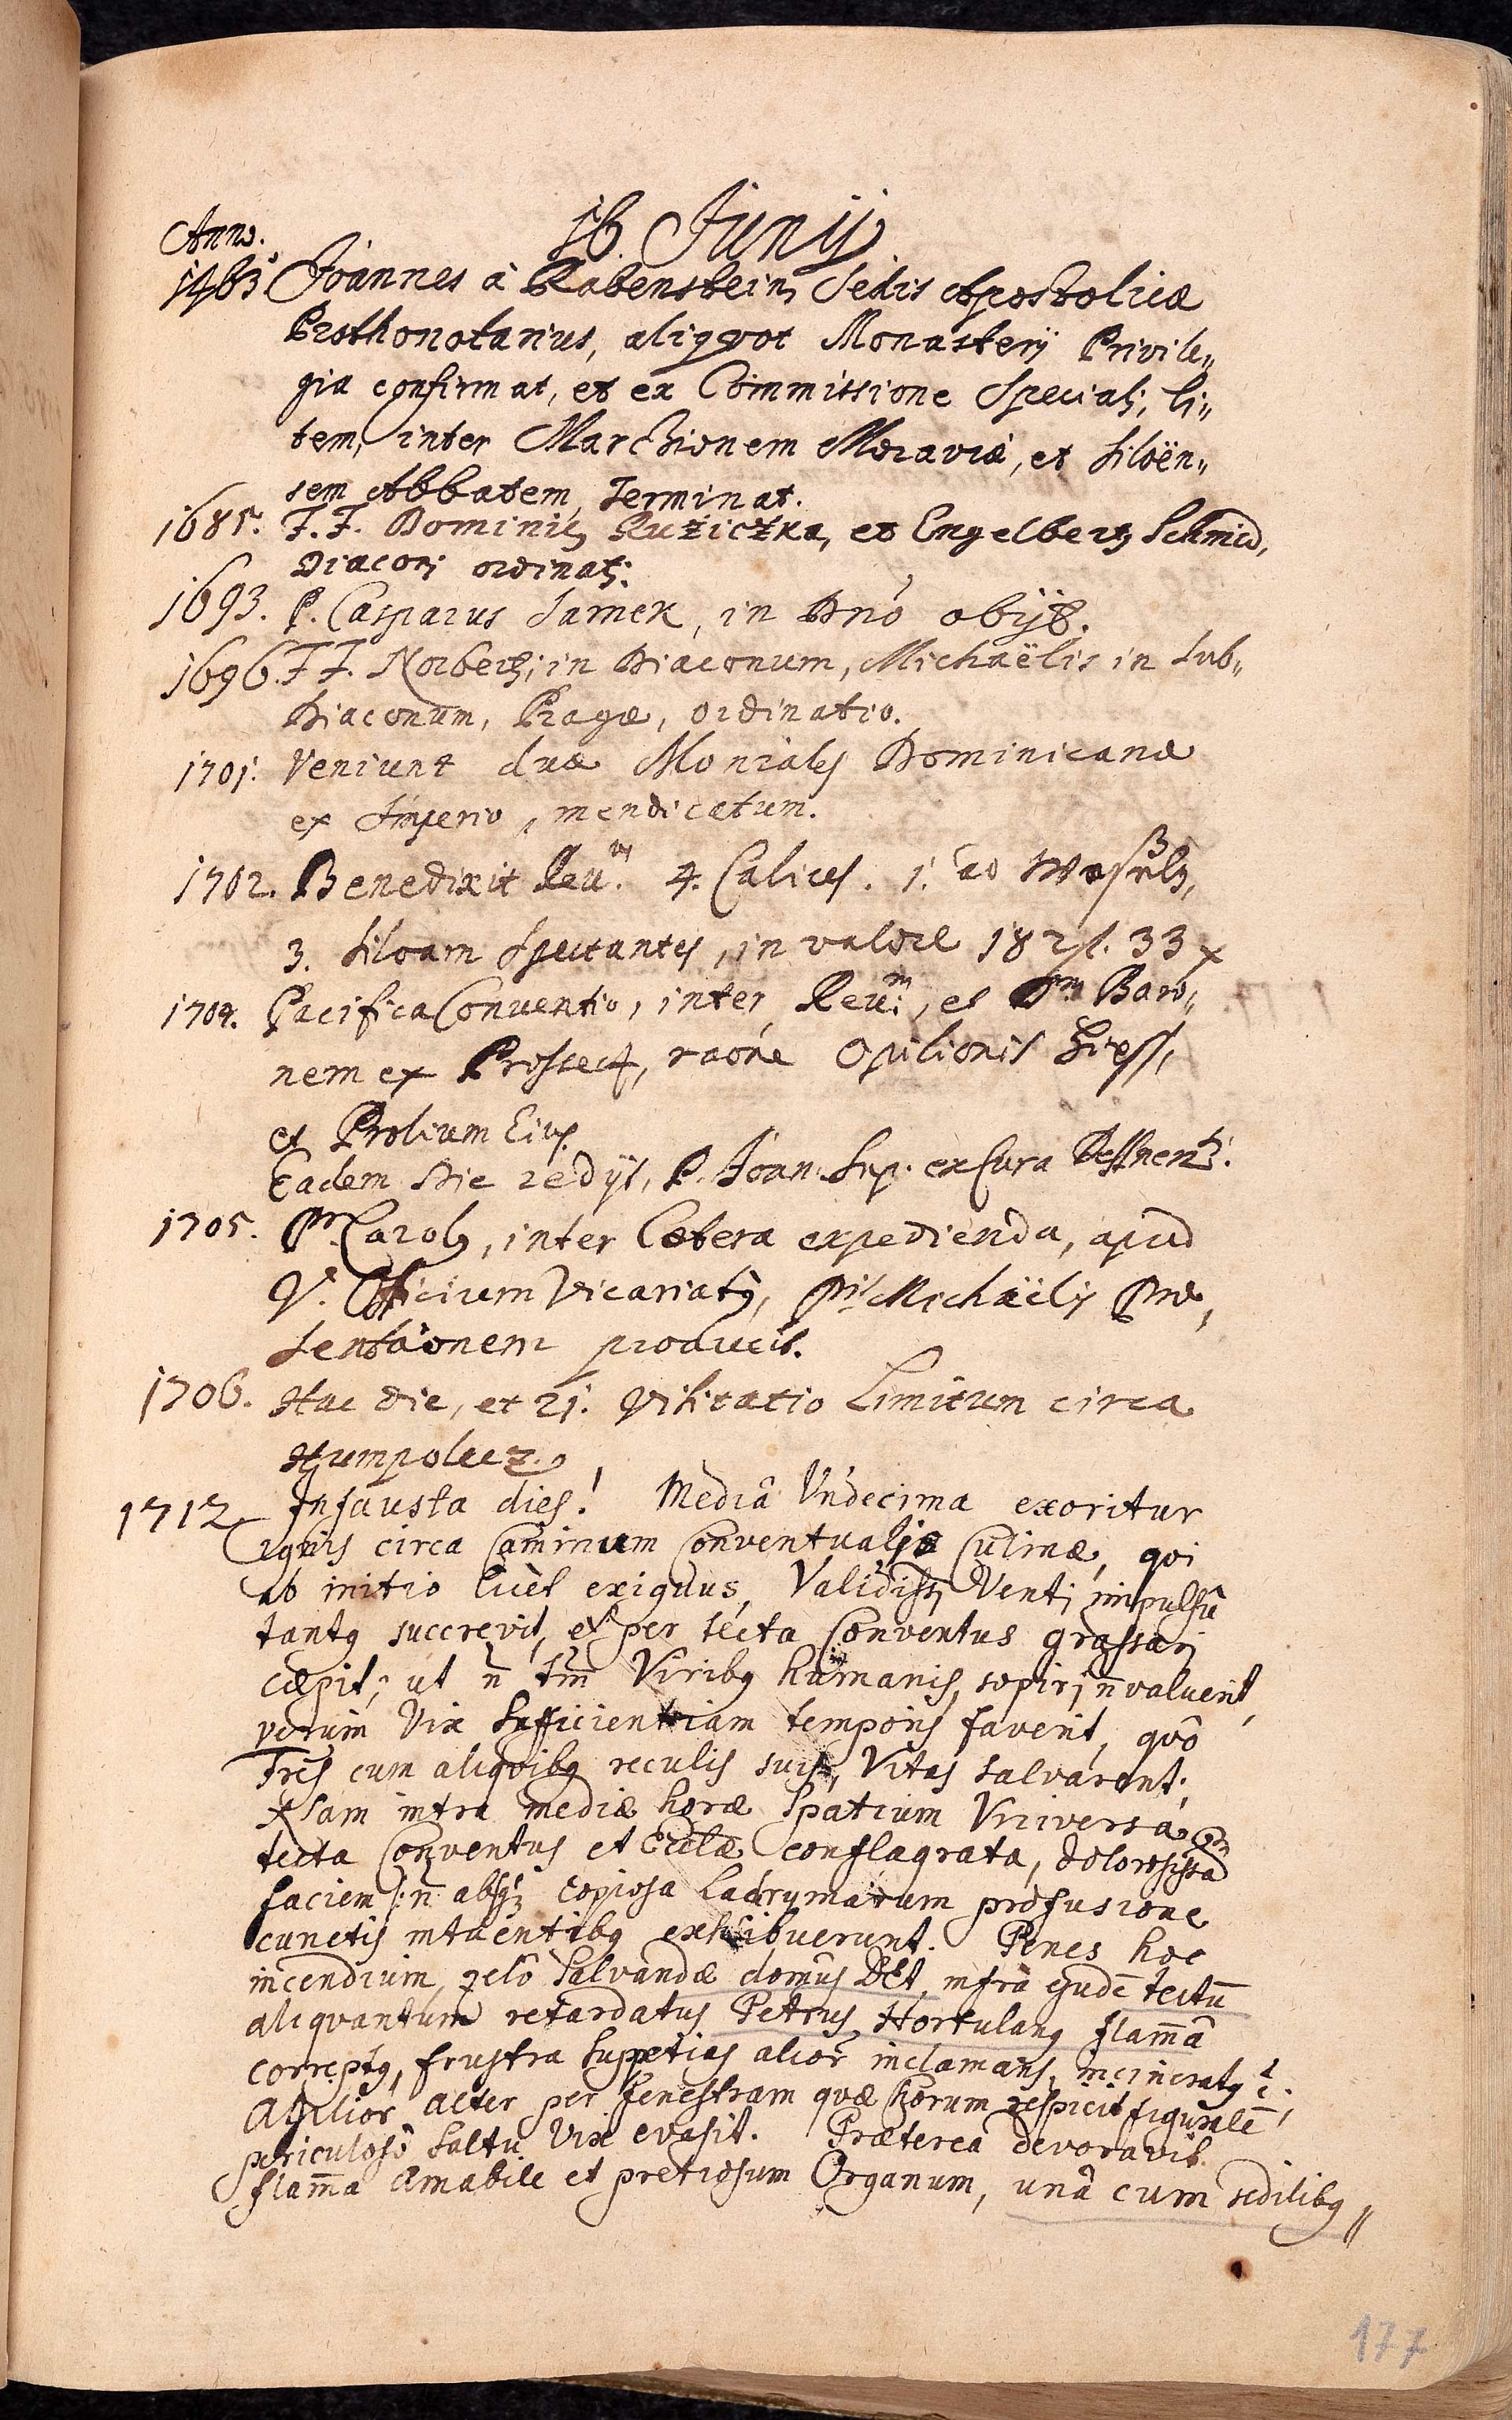 Anno. 16. Junij
1463 Joannes à Rabenstein, Sedis Apostolicæ
Prothonotarius, aliqvot Monasterij Privile„
gia confirmat, et ex Commissione Speciali, li„
tem, inter Marchionem Moraviæ, et Siloën„
sem Abbatem, Terminat.
1685. F.F. Dominicus Ružiczka, et Engelbertus Schmid,
Diaconi ordinati.
1693. P. Casparus Samek, in Dnō obijt.
1696. F F. Norberti, in Diaconum, Michaëlis in Sub„
Diaconum, Pragæ, ordinatio.
1701. Veniunt duæ Moniales Dominicanæ
ex Imperio, mendicatum.
1702. Benedixit Reu.mus 4. Calices. 1. ad
3. Siloam Spectantes, in valore 182 fl. 33 x
1704. Pacifica Conventio, inter Reu:m, et Dm Baro„
nem ex raōne Opilionis
et Prolium Eius.
Eadem Die redijt, P. Joan: Sup. ex Cura
1705. Pr Carolus, inter Cætera expedienda, apud
V. Officium Vicariatus, Pris Michaëlis Præ„
sentaōnem producit.
1706. Hac die, et 21. Visitatio Limitum circa
Humpolecz.
1712. Infausta dies! Mediâ Vndecima exoritur
ignis circa Caminum Conventualis Culinæ, qvi
ab initio licèt exiguus, Validissi Venti impulsû
tantus succrevit, et per tecta Conventus grassari
cæpit; ut n̄ tm̄ Viribus humanis, sopiri n̄ valuerit,
verùm Vix Sufficientiam temporis faverit, qvô
Frēs cum aliqvibus reculis suis, Vitas salvarent.
Nam intra mediæ horæ Spatium Vniversa
tecta Conventus et Ecclæ conflagrata, dolorosissam
faciem /: n̄ absq; copiosa Lachrymarum profusione
cunctis intuentibus exhibuerunt. Penes hoc
incendium, zelô Salvandæ domûs DEI, infra ejusdē tectū
aliqvantum retardatus Petrus Hortulanus flam̄â
correptus, frustra Suppetias alior̄ inclamans, incineratus ē;
Agilior alter per fenestram quæ Chorum respicit figuralē,
periculosô Saltu Vix evasit. Præterea devoravit
flam̄a amabile et pretiosum Organum, unâ cum sedilibus //
177